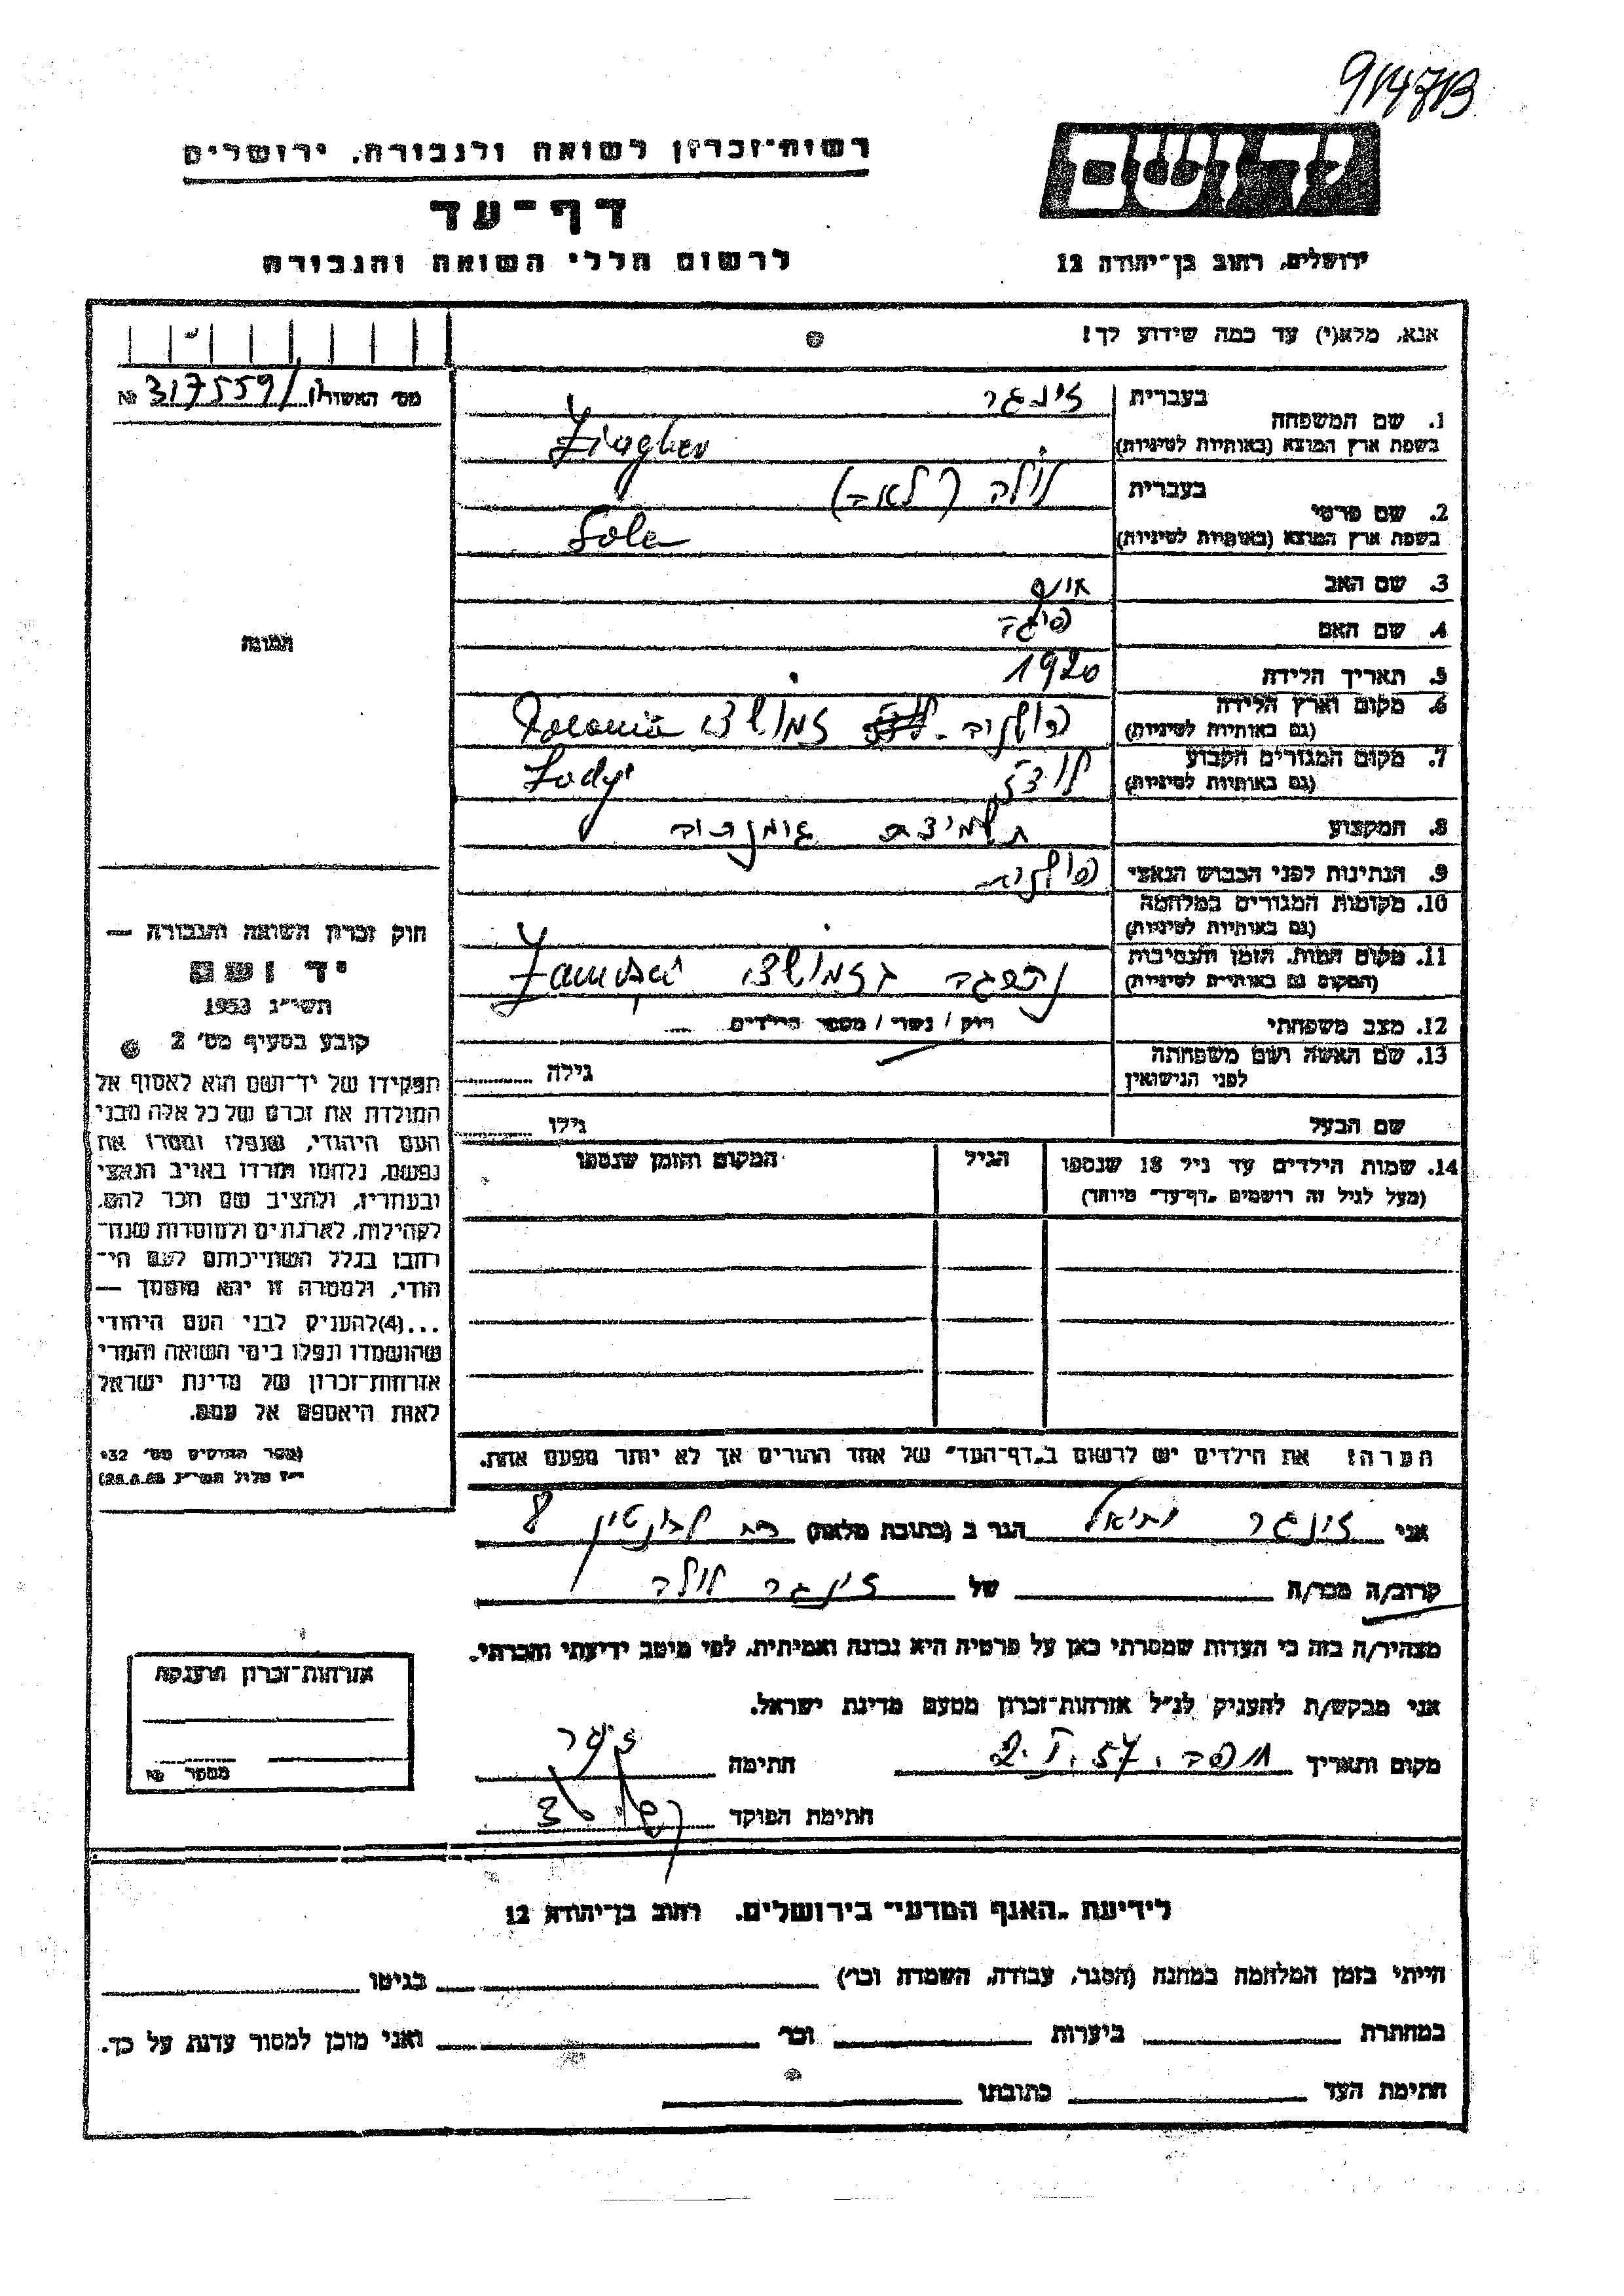 רשות־זכרון לשואה ולגבורה, ירושלים
דף־עד
לרשום חללי השואה והגבורה
יד ושם
ירושלים, רחוב בן־יהודה 12
אנא, מלא(י) עד כמה שידוע לך!
מס' האשור № 317559/
תמונה
1. שם המשפחה
בעברית זינגר
בשפת ארץ המוצא (באותיות לטיניות) Zingher
2. שם פרטי
בעברית לולה (לאה)
בשפת ארץ המוצא (באותיות לטיניות) Lola
3. שם האב
4. שם האם פיגה
5. תאריך הלידה 1920
6. מקום וארץ הלידה
(גם באותיות לטיניות) פולניה זמושץ Polonia
7. מקום המגורים הקבוע
(גם באותיות לטיניות) לודז Lodz
8. המקצוע תלמידת
9. הנתינות לפני הכבוש הנאצי פולנית
10. מקומות המגורים במלחמה
(גם באותיות לטיניות)
11. מקום המות, הזמן והנסיבות
(המקום גם באותיות לטיניות) נספגה בזמושץ
12. מצב משפחתי רוק / נשוי / מספר הילדים
13. שם האשה ושם משפחתה
לפני הנישואין
גילה
שם הבעל
גילו
14. שמות הילדים עד גיל 18 שנספו
(מעל לגיל זה רושמים „דף־עד" מיוחד)
הגיל
המקום והזמן שנספו
הערה! את הילדים יש לרשום ב„דף־העד" של אחד ההורים אך לא יותר מפעם אחת.
חוק זכרון השואה והגבורה —
יד ושם
תשי"ג 1953
קובע בסעיף מס' 2
תפקידו של יד־ושם הוא לאסוף אל
המולדת את זכרם של כל אלה מבני
העם היהודי, שנפלו ומסרו את
נפשם, נלחמו ומרדו באויב הנאצי
ובעוזריו, ולהציב שם וזכר להם,
לקהילות, לארגונים ולמוסדות שנח־
רבו בגלל השתייכותם לעם הי־
הודי, ולמטרה זו יהא מוסמך —
...(4)להעניק לבני העם היהודי
שהושמדו ונפלו בימי השואה והמרי
אזרחות־זכרון של מדינת ישראל
לאות היאספם אל עמם.
אני זינגר יחיאל הגר ב (כתובת מלאה) 8
קרוב/ה מכר/ה של זינגר לולה
מצהיר/ה בזה כי העדות שמסרתי כאן על פרטיה היא נכונה ואמיתית, לפי מיטב ידיעתי והכרתי.
אני מבקש/ת להעניק לנ"ל אזרחות־זכרון מטעם מדינת ישראל.
מקום ותאריך חיפה. 2.I.57 חתימה
חתימת הפוקד
אזרחות־זכרון הוענקה
מספר №
לידיעת „האגף המדעי" בירושלים, רחוב בן־יהודה 12
הייתי בזמן המלחמה במחנה (הסגר, עבודה, השמדה וכו') בגיטו
במחתרת ביערות וכו' ואני מוכן למסור עדות על כך.
חתימת העד כתובתו